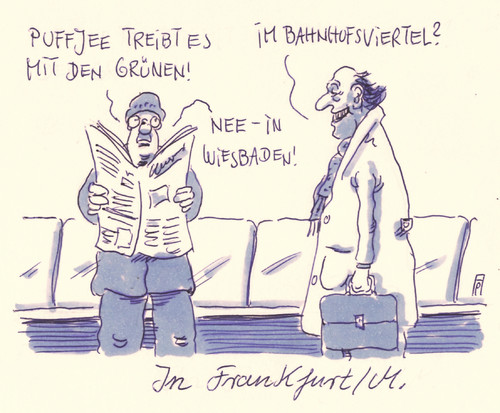 PUFFJEE TREIBT ES
MIT DEN GRÜNEN!
IM BAHNHOFSVIERTEL?
NEE-IN
WIESBADEN!
In Frankfurt/M.